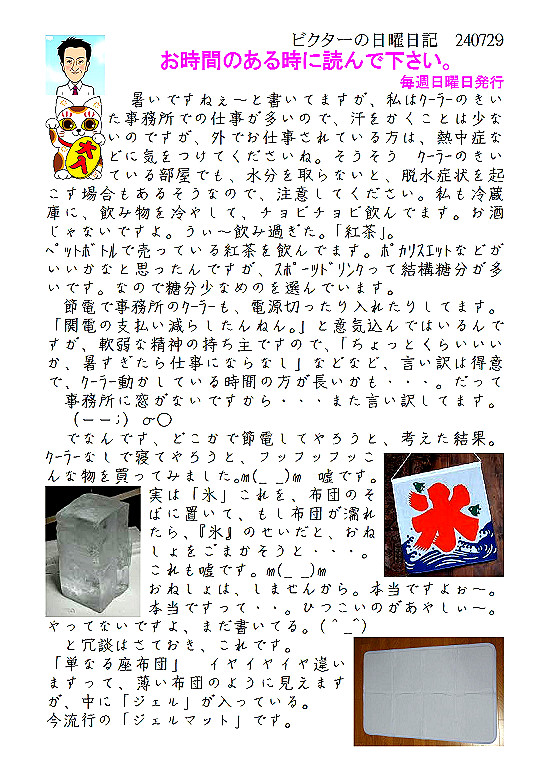 ビクターの日曜日記　240729
お時間のある時に読んで下さい。
毎週日曜日発行
暑いですねぇ～と書いてますが、私はｸｰﾗｰのきい
た事務所での仕事が多いので、汗をかくことは少な
いのですが、外でお仕事されている方は、熱中症な
どに気をつけてくださいね。そうそう　ｸｰﾗｰのきい
ている部屋でも、水分を取らないと、脱水症状を起
こす場合もあるそうなので、注意してください。私も冷蔵
庫に、飲み物を冷やして、チョビチョビ飲んでます。お酒
じゃないですよ。うぃ～飲み過ぎた。「紅茶」。
ﾍﾟｯﾄﾎﾞﾄﾙで売っている紅茶を飲んでます。ﾎﾟｶﾘｽｴｯﾄなどが
いいかなと思ったんですが、ｽﾎﾟｰﾂﾄﾞﾘﾝｸって結構糖分が多
いです。なので糖分少なめのを選んでいます。
節電で事務所のｸｰﾗｰも、電源切ったり入れたりしてます。
「関電の支払い減らしたんねん。」と意気込んではいるんで
すが、軟弱な精神の持ち主ですので、「ちょっとくらいいい
か、暑すぎたら仕事にならなし」などなど、言い訳は得意
で、ｸｰﾗｰ動かしている時間の方が長いかも・・・。だって
事務所に窓がないですから・・・また言い訳してます。
（ーー；）σ○
でなんです、どこかで節電してやろうと、考えた結果。
ｸｰﾗｰなしで寝てやろうと、フッフッフッこ
んな物を買ってみました。m(_ _)m　嘘です。
実は「氷」これを、布団のそ
ばに置いて、もし布団が濡れ
たら、『氷』のせいだと、おね
しょをごまかそうと・・・。
これも嘘です。m(_ _)m
おねしょは、しませんから。本当ですよぉ～。
本当ですって・・。ひつこいのがあやしぃ～。
やってないですよ、まだ書いてる。(＾_＾)
と冗談はさておき、これです。
「単なる座布団』　イヤイヤイヤ違い
ますって、薄い布団のように見えます
が、中に「ジェル」が入っている。
今流行の「ジェルマット」です。
氷